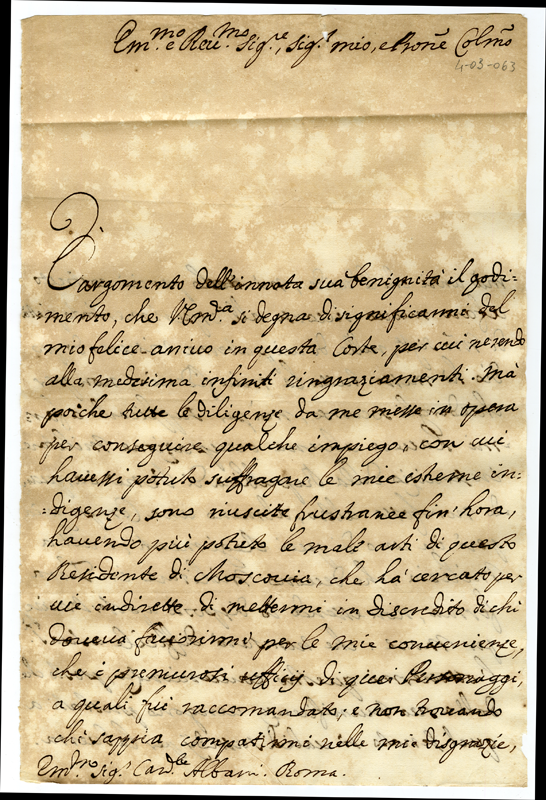 Em.mo e Reu.mo Sig.re, Sig.r mio, e Prone Colmo
4-03-063
È argomento dell'innata sua benignità il godi-
mento, che V. Em.za si degna di significarmi del
mio felice arriuo in questa Corte, per cui ne rendo
alla medesima infiniti ringraziamenti. Mà
poiche tutte le diligenze da me messe in opera
per conseguire qualche impiego, con cui
hauessi potuto suffragare le mie estreme in-
digenze, sono riuscite frustranee fin' hora,
hauendo più potuto le male arti di questo
Residente di Moscouia, che há cercato per
uie indirette di mettermi in discredito di chi
doueua fauorirmi per le mie conuenienze,
che i premurosi ufficij di quei Personaggi,
a quali fui raccomandato; e non trouando
chi sappia compatirmi nelle mie disgrazie,
Em.mo Sig.r Card.le Albani. Roma.